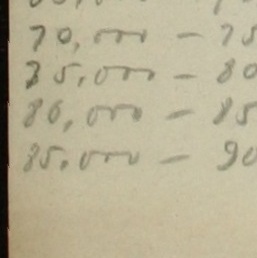 70,000 - 75
75,000 - 80
80,000 - 85
85.000 - 90